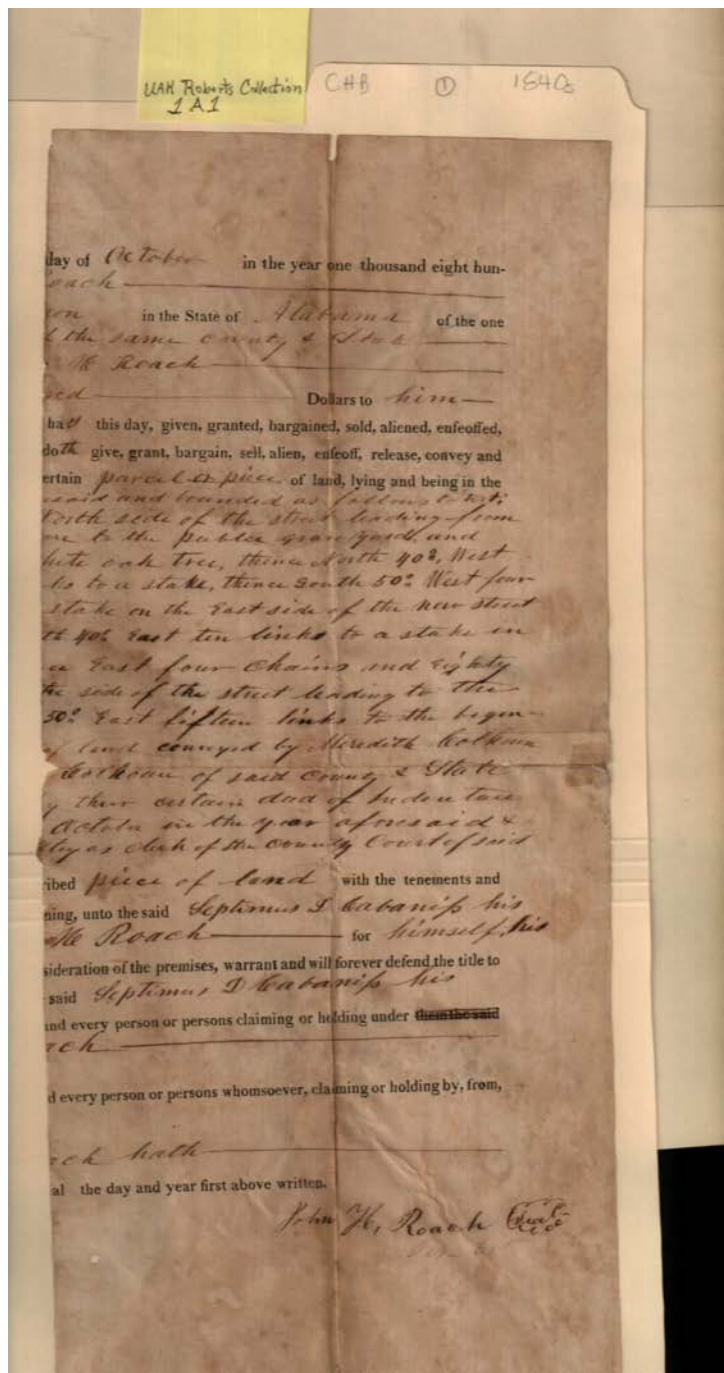 UAH Roberts Collection
1 A 1
CHB ① 1840s
day of October in the year one thousand eight hun-
oach
on in the State of Alabama of the one
the same County & State
H Roach
Dollars to him
hath this day, given, granted, bargained, sold, aliened, enfeoffed,
doth give, grant, bargain, sell, alien, enfeoff, release, convey and
ertain parcel or piece of land, lying and being in the
said and bounded as follows to wit:
North side of the street leading from
to the public grave yard, and
hite oak tree, thence North 40° West
ks to a stake, thence South 50° West four
stake on the East side of the new street
th 40° East ten links to a stake in
East four Chains and Eighty
the side of the street leading to the
50° East fifteen links to the begin-
of land conveyed by Meredith Calhoun
Calhoun of said County & State
y their certain deed of Indenture
October in the year aforesaid &
as clerk of the County Court of said
ribed piece of land with the tenements and
ning, unto the said Septimus D Cabaniss his
H Roach for himself, his
sideration of the premises, warrant and will forever defend the title to
said Septimus D Cabaniss his
and every person or persons claiming or holding under them the said
ach
d every person or persons whomsoever, claiming or holding by, from,
ach hath
al the day and year first above written.
John H, Roach Seal